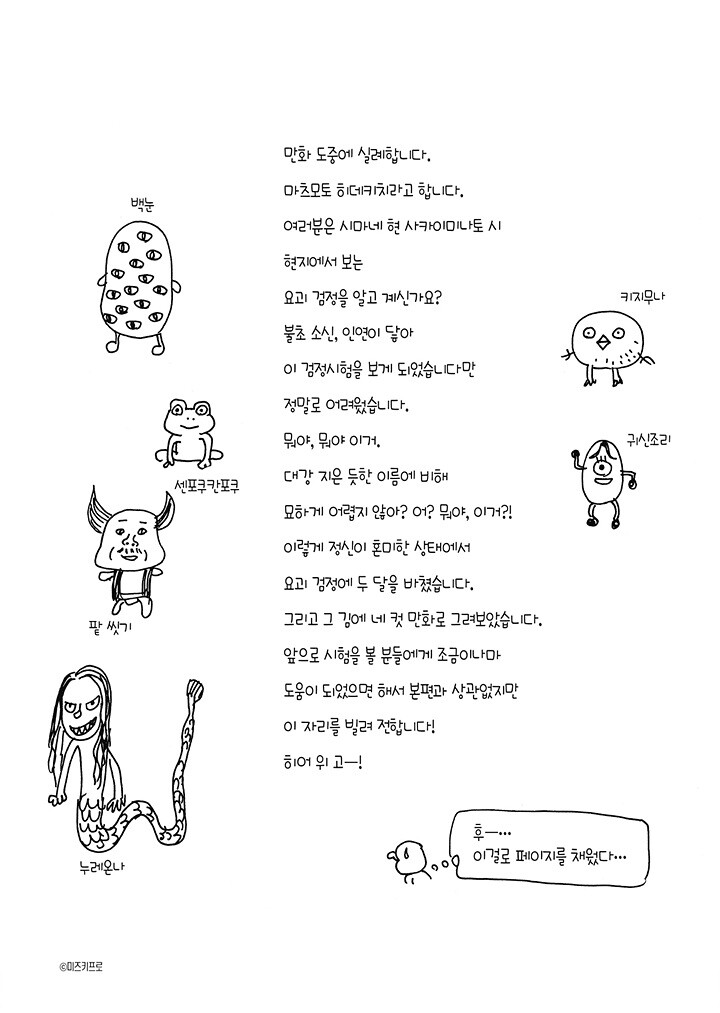 만화 도중에 실례합니다.
마츠모토 히데키치라고 합니다.
여러분은 시마네 현 사카이미나토 시
현지에서 보는
요괴 검정을 알고 계신가요?
불초 소신, 인연이 닿아
이 검정시험을 보게 되었습니다만
정말로 어려웠습니다.
뭐야, 뭐야 이거.
대강 지은 듯한 이름에 비해
묘하게 어렵지 않아? 어? 뭐야, 이거?!
이렇게 정신이 혼미한 상태에서
요괴 검정에 두 달을 바쳤습니다.
그리고 그 김에 네 컷 만화로 그려보았습니다.
앞으로 시험을 볼 분들에게 조금이나마
도움이 되었으면 해서 본편과 상관없지만
이 자리를 빌려 전합니다!
히어 위 고—!
백눈
센포쿠칸포쿠
팥 씻기
누레온나
키지무나
귀신조리
후—…
이걸로 페이지를 채웠다…
©미즈키프로